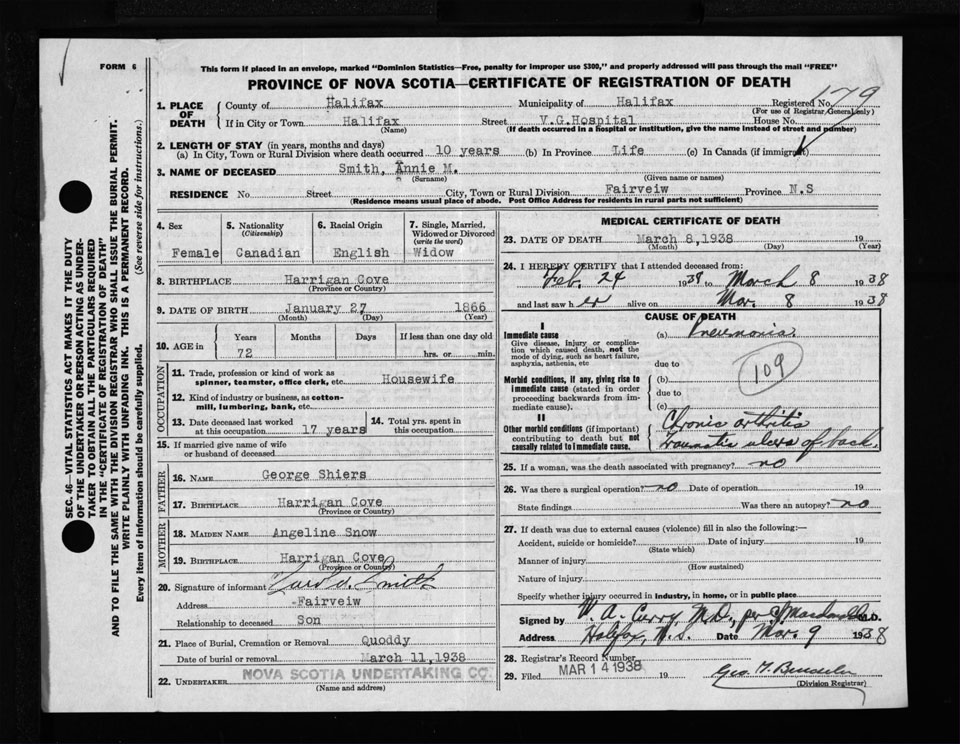 FORM 6
This form if placed in an envelope, marked "Dominion Statistics—Free, penalty for improper use $300," and properly addressed will pass through the mail "FREE"
PROVINCE OF NOVA SCOTIA—CERTIFICATE OF REGISTRATION OF DEATH
SEC. 46—VITAL STATISTICS ACT MAKES IT THE DUTY
OF THE UNDERTAKER OR PERSON ACTING AS UNDER-
TAKER TO OBTAIN ALL THE PARTICULARS REQUIRED
IN THE "CERTIFICATE OF REGISTRATION OF DEATH"
AND TO FILE THE SAME WITH THE DIVISION REGISTRAR WHO SHALL ISSUE THE BURIAL PERMIT.
WRITE PLAINLY WITH UNFADING INK. THIS IS A PERMANENT RECORD.
Every item of information should be carefully supplied. (See reverse side for instructions.)
1. PLACE OF DEATH
County of Halifax Municipality of Halifax Registered No. 179
(For use of Registrar General only)
If in City or Town Halifax Street V.G.Hospital House No.
(Name) (If death occurred in a hospital or institution, give the name instead of street and number)
2. LENGTH OF STAY (in years, months and days)
(a) In City, Town or Rural Division where death occurred 10 years (b) In Province Life (c) In Canada (if immigrant)
3. NAME OF DECEASED Smith, Annie M.
(Surname) (Given name or names)
RESIDENCE No. Street City, Town or Rural Division Fairveiw Province N.S
(Residence means usual place of abode. Post Office Address for residents in rural parts not sufficient)
4. Sex Female
5. Nationality (Citizenship) Canadian
6. Racial Origin English
7. Single, Married, Widowed or Divorced (write the word) Widow
8. BIRTHPLACE Harrigan Cove
(Province or Country)
9. DATE OF BIRTH January 27 1866
(Month) (Day) (Year)
10. AGE in Years Months Days If less than one day old
72 hrs. or min.
OCCUPATION
11. Trade, profession or kind of work as
spinner, teamster, office clerk, etc. Housewife
12. Kind of industry or business, as cotton-
mill, lumbering, bank, etc.
13. Date deceased last worked
at this occupation 17 years
14. Total yrs. spent in
this occupation
15. If married give name of wife
or husband of deceased
FATHER
16. NAME George Shiers
17. BIRTHPLACE Harrigan Cove
(Province or Country)
MOTHER
18. MAIDEN NAME Angeline Snow
19. BIRTHPLACE Harrigan Cove
(Province or Country)
20. Signature of informant Smith
Address Fairveiw
Relationship to deceased Son
21. Place of Burial, Cremation or Removal Quoddy
Date of burial or removal March 11,1938
22. UNDERTAKER NOVA SCOTIA UNDERTAKING CO.
(Name and address)
MEDICAL CERTIFICATE OF DEATH
23. DATE OF DEATH March 8,1938 19
(Month) (Day) (Year)
24. I HEREBY CERTIFY that I attended deceased from:
Feb. 24 19 to March 8 1938
and last saw her alive on Mar. 8 1938
CAUSE OF DEATH
I
Immediate cause
Give disease, injury or complica-
tion which caused death, not the
mode of dying, such as heart failure,
asphyxia, asthenia, etc
(a) Pneumonia
due to
109
Morbid conditions, if any, giving rise to
immediate cause (stated in order
proceeding backwards from im-
mediate cause).
(b)
due to
(c)
II
Other morbid conditions (if important)
contributing to death but not
causally related to immediate cause.
Chronic arthritis
Traumatic ulcers of back.
25. If a woman, was the death associated with pregnancy? no
26. Was there a surgical operation? no Date of operation 19
State findings Was there an autopsy? no
27. If death was due to external causes (violence) fill in also the following:—
Accident, suicide or homicide? Date of injury 19
(State which)
Manner of injury
(How sustained)
Nature of injury
Specify whether injury occurred in industry, in home, or in public place
Signed by W. A. Curry, M.D., per M.D.
Address Halifax, N.S. Date Mar. 9 1938
28. Registrar's Record Number
29. Filed MAR 14 1938 19
(Division Registrar)